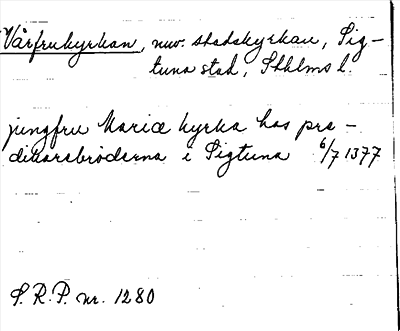 Vårfrukyrkan, nuv. stadskyrkan, Sig-
tuna stad, Sthlms l.
jungfru Mariæ kyrka hos pre-
dikarebröderna i Sigtuna 6/7 1377
S.R.P. nr. 1280